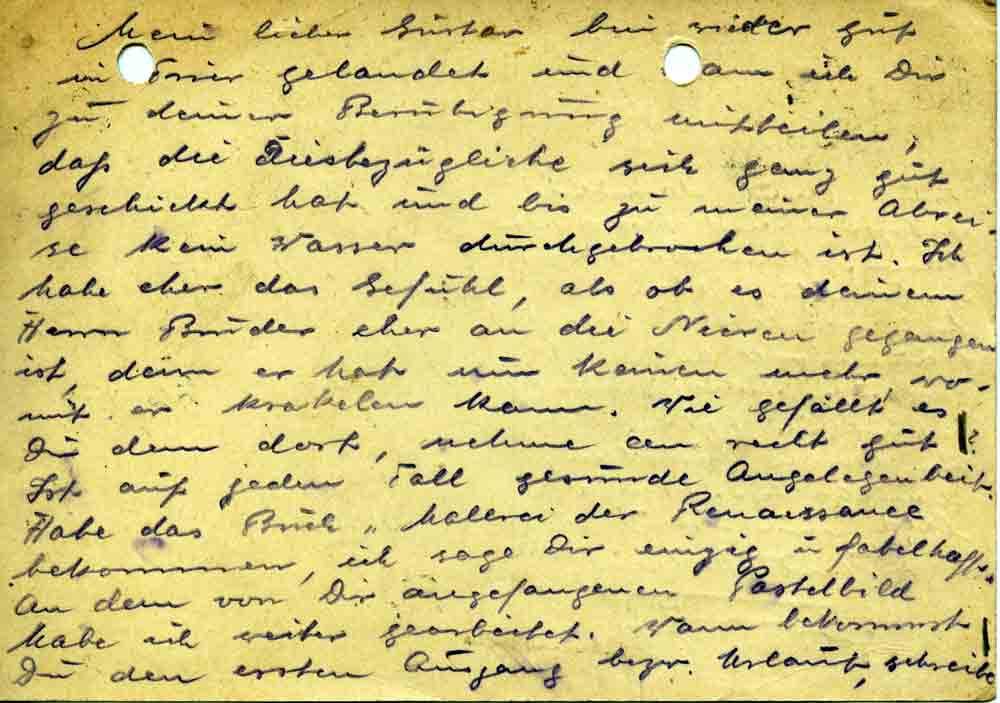 Mein lieber Gustav bin wieder gut
in Trier gelandet und kann ich Dir
zu deiner Beruhigung mitteilen,
daß die Diesbezügliche sich ganz gut
geschickt hat und bis zu meiner Abrei-
se kein Wasser durchgebrochen ist. Ich
habe eher das Gefühl, als ob es deinem
Herrn Bruder eher an die Nieren gegangen
ist, denn er hat nun keinen mehr, wo-
mit er krakelen kann. Wie gefällt es
Dir denn dort, nehme an recht gut?
Ist auf jeden Fall gesunde Angelegenheit.
Habe das Buch „Malerei der Renaissance
bekommen, ich sage Dir einzig u fabelhaft.
An dem von Dir angefangenen Pastelbild
habe ich weiter gearbeitet. Wann bekommst
Du den ersten Ausgang bezw. Urlaub, schreibe